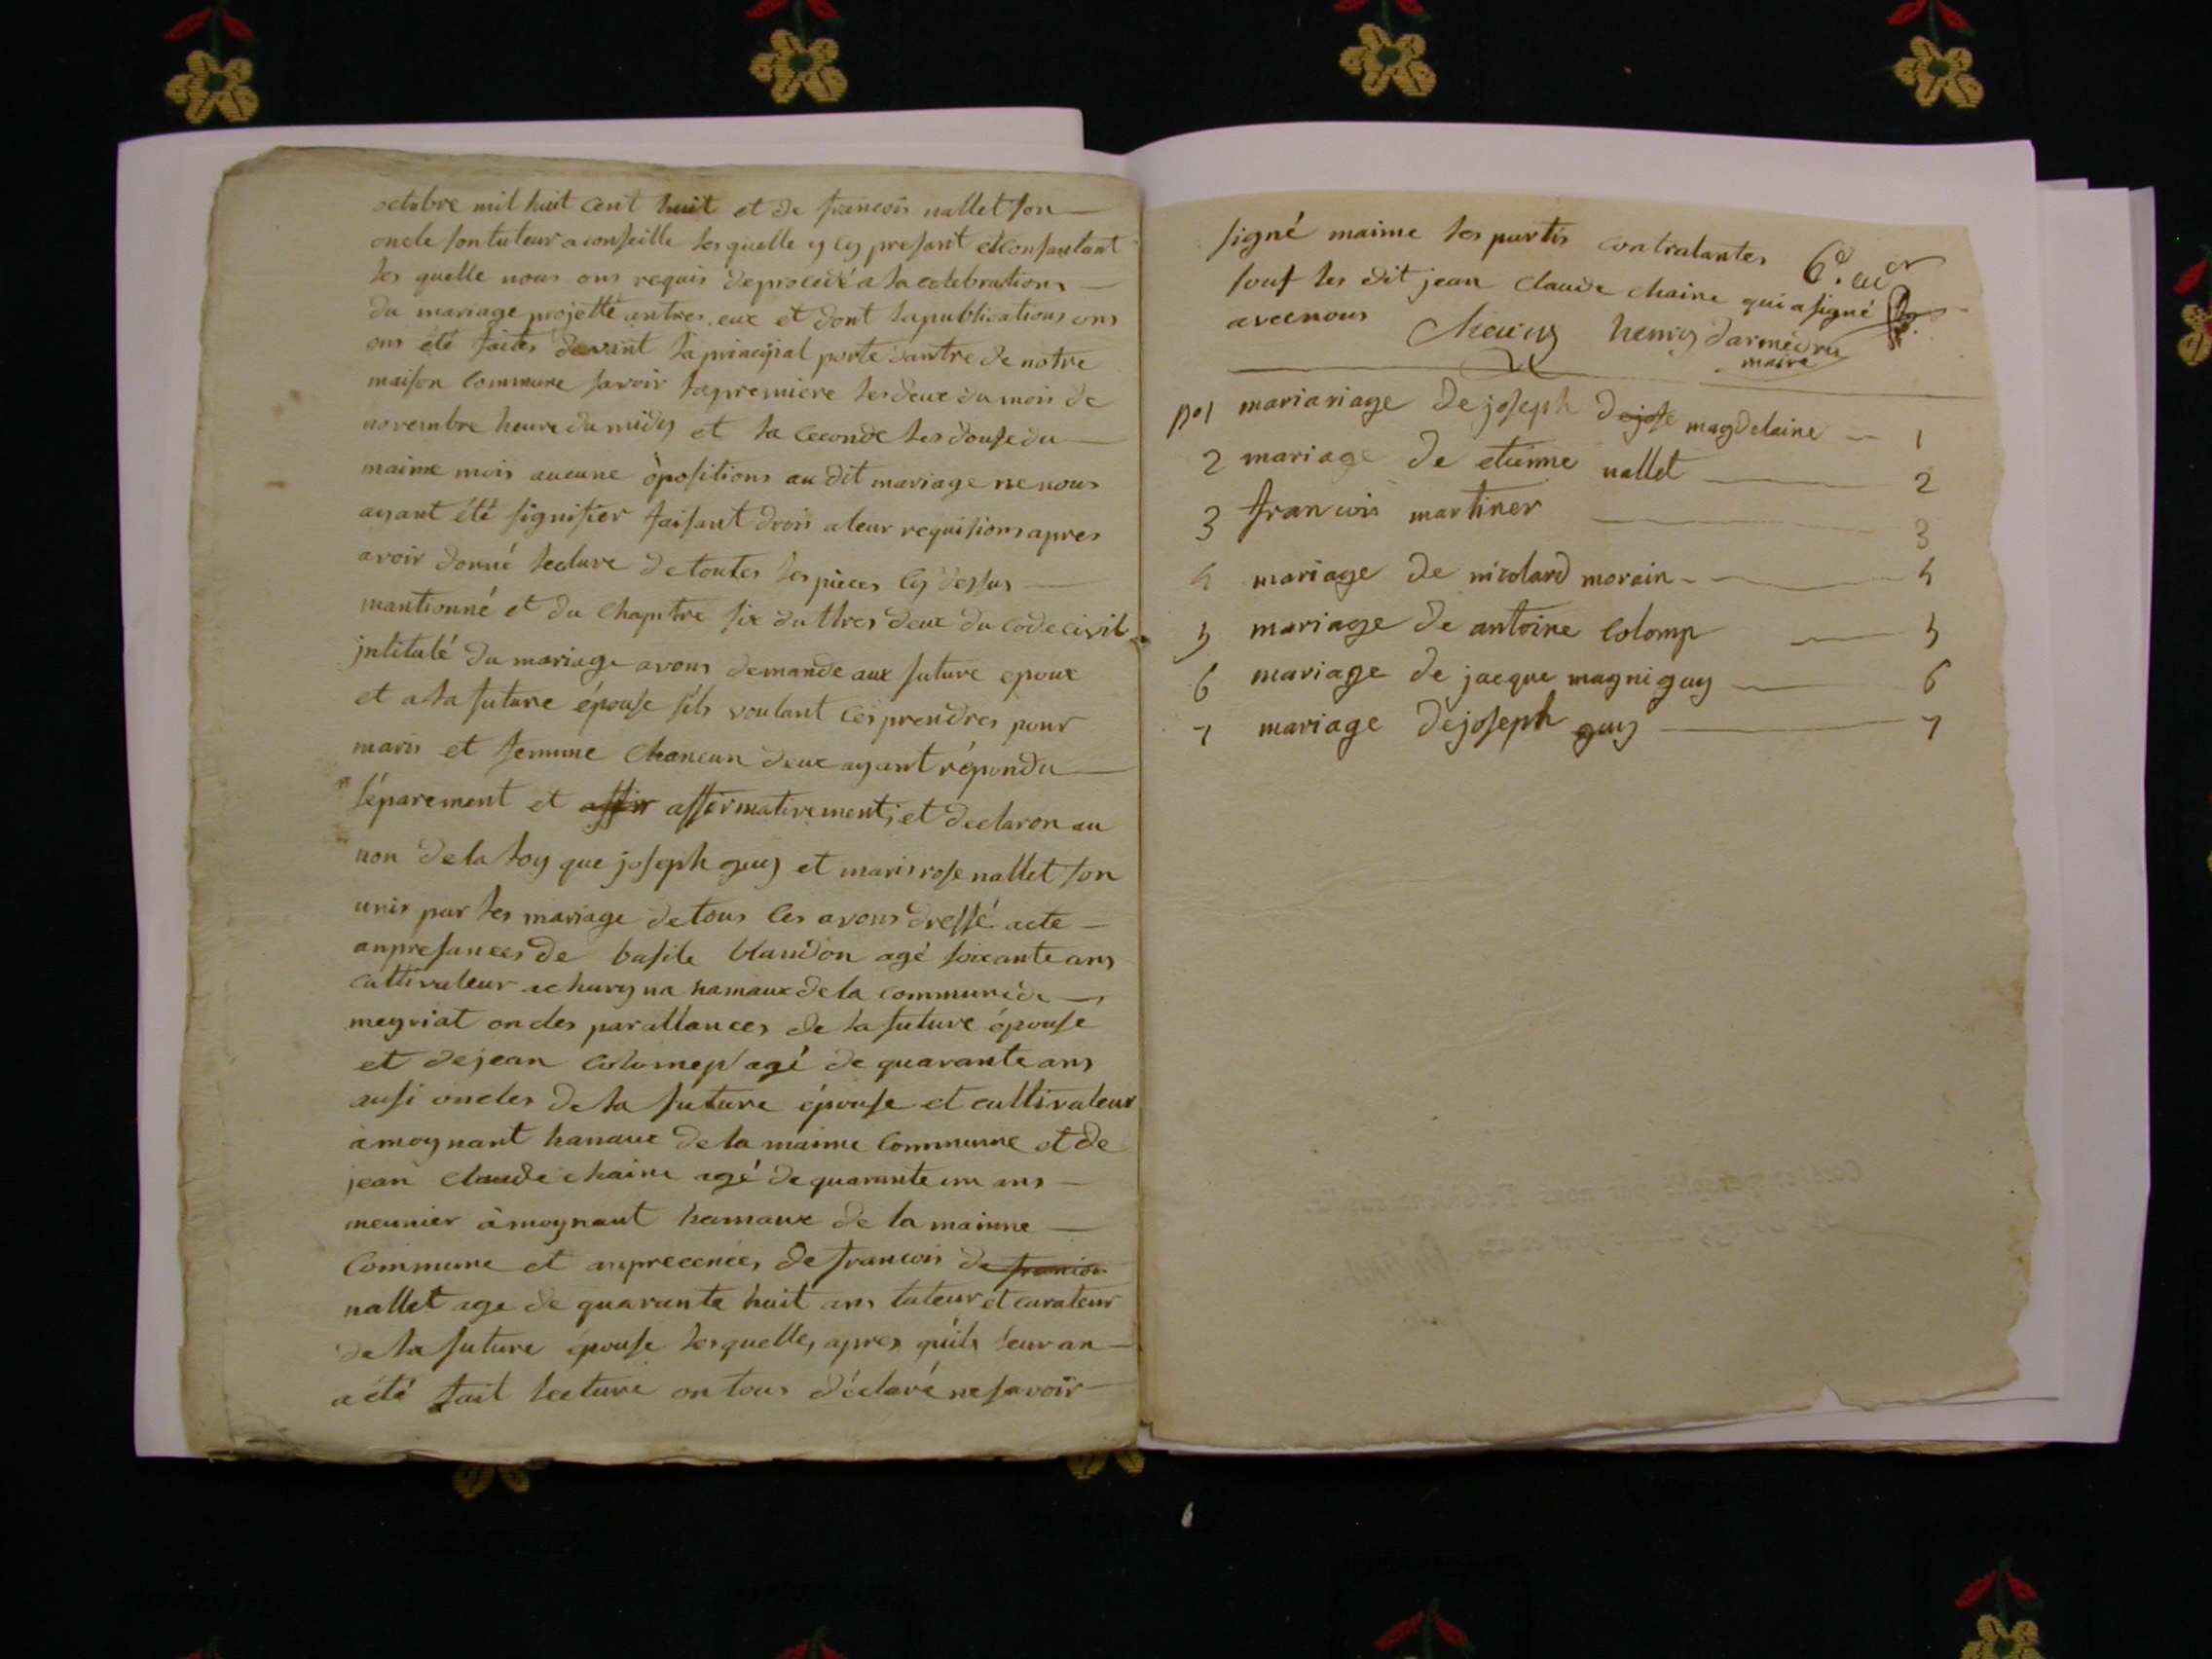 octobre mil huit cent huit et de francois nallet son
oncle son tuteur a conseille les quelle y cy presant et consantant
les quelle nous ons requis de procedé a la celebrations
du mariage projetté antres eux et dont la publications ons
ons été faites devant la principal porte dantre de notre
maison commune savoir la premiere les deux du mois de
novembre heure du midy et la ceconde les douse du
maime mois aucune òpositions au dit mariage ne nous
ayant été signifier faisant drois a leur requisions apres
avoir donné lecture de toutes les pieces cy dessus
mantionné et du chapitre six du titres deux du code civil
jntitulé du mariage avons demande aux future epoux
et a la future épouse s'ils voulant ces prendres pour
maris et femme chancun deux ayant répondu
séparement et affir affirmativement, et declaron au
non de la loy que joseph guy et maris rose nallet son
unis par les mariage de tous ces avons dressé acte
anpresances de basile blandon agé soixante ans
cultivateur a chavagna hamaux de la commune de
meyriat oncles parallances de la future épouse
et de jean colomep agé de quarante ans
ausi oncles de la future épouse et cultivateur
à moynant hamaux de la maime commune et de
jean claude chaine agé de quarante un ans
meunier à moynant hamaux de la maime
commune et anprecences de francois de francois
nallet age de quarante huit ans tuteur et curateur
de la future épouse lesquelles apres qu'ils leur an
a été fait lecture on tous déclaré ne savoir
signé maime les partis contratantes
souf les dit jean claude chaine qui a signé
avec nous
henry darmedru
maire
no1 mariariage de joseph de jose magdelaine 1
2 mariage de etienne nallet 2
3 francois martiner 3
4 mariage de nicolard morain 4
5 mariage de antoine colomp 5
6 mariage de jacque magni guy 6
7 mariage de joseph guy 7